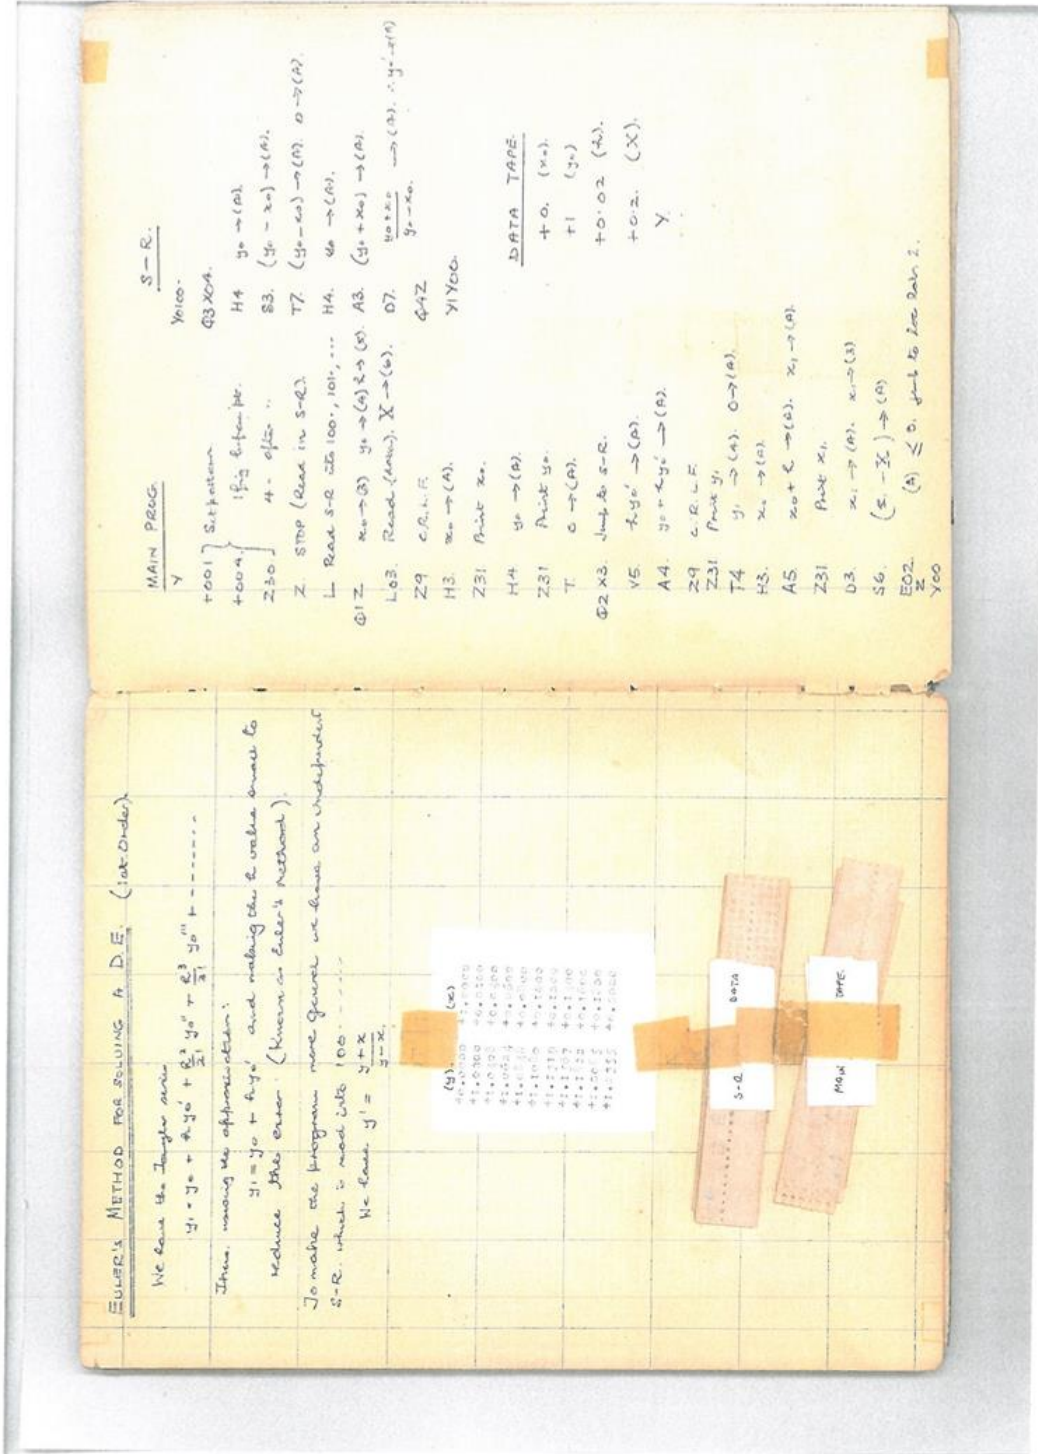 EULER'S METHOD FOR SOLVING A D.E. (1st Order).
We have the Taylor series
y₁ = y₀ + hy₀' + h²/2! y₀'' + h³/3! y₀''' + -------
Then using the approximation:
y₁ = y₀ + hy₀' and making the h value small to
reduce the error. (Known as Euler's method).
To make the program more general we have an independent
S-R. which is read into 100 -----
We have y' = y+x / y-x.
(y) (x)
S-R DATA
MAIN TAPE
MAIN PROG.
Y
+001 } Set pattern
+004 } 1 fig before pt.
Z30 } 4 - after ..
Z STOP (Read in S-R).
L Read S-R into 100, 101, ---
Q1 Z x₀→(3) y₀→(4) h→(5).
L03. Read (data). X→(6).
Z9 C.R.L.F.
H3. x₀→(A).
Z31 Print x₀.
H4 y₀→(A).
Z31 Print y₀.
T. 0→(A).
Q2 X3. Jump to S-R.
V5. hy₀'→(A).
A4. y₀+hy₀'→(A).
Z9 C.R.L.F.
Z31 Print y₁
T4 y₁→(4). 0→(A).
H3. x₀→(A).
A5 x₀+h→(A). x₁→(A).
Z31 Print x₁.
D3. x₁→(A). x₁→(3)
S6. (x₁-X)→(A)
E02. (A) ≤ 0. jump to
Z
Y00
S-R.
Y0100.
Q3 X04.
H4 y₀→(A).
S3. (y₀-x₀)→(A).
T7. (y₀-x₀)→(A). 0→(A).
H4. y₀→(A).
A3. (y₀+x₀)→(A).
D7. y₀+x₀ / y₀-x₀. →(A). ∴ y₀'→(A)
Q4Z
Y1Y00.
DATA TAPE.
+0. (x₀).
+1 (y₀)
+0.02 (h).
+0.2. (X).
Y.